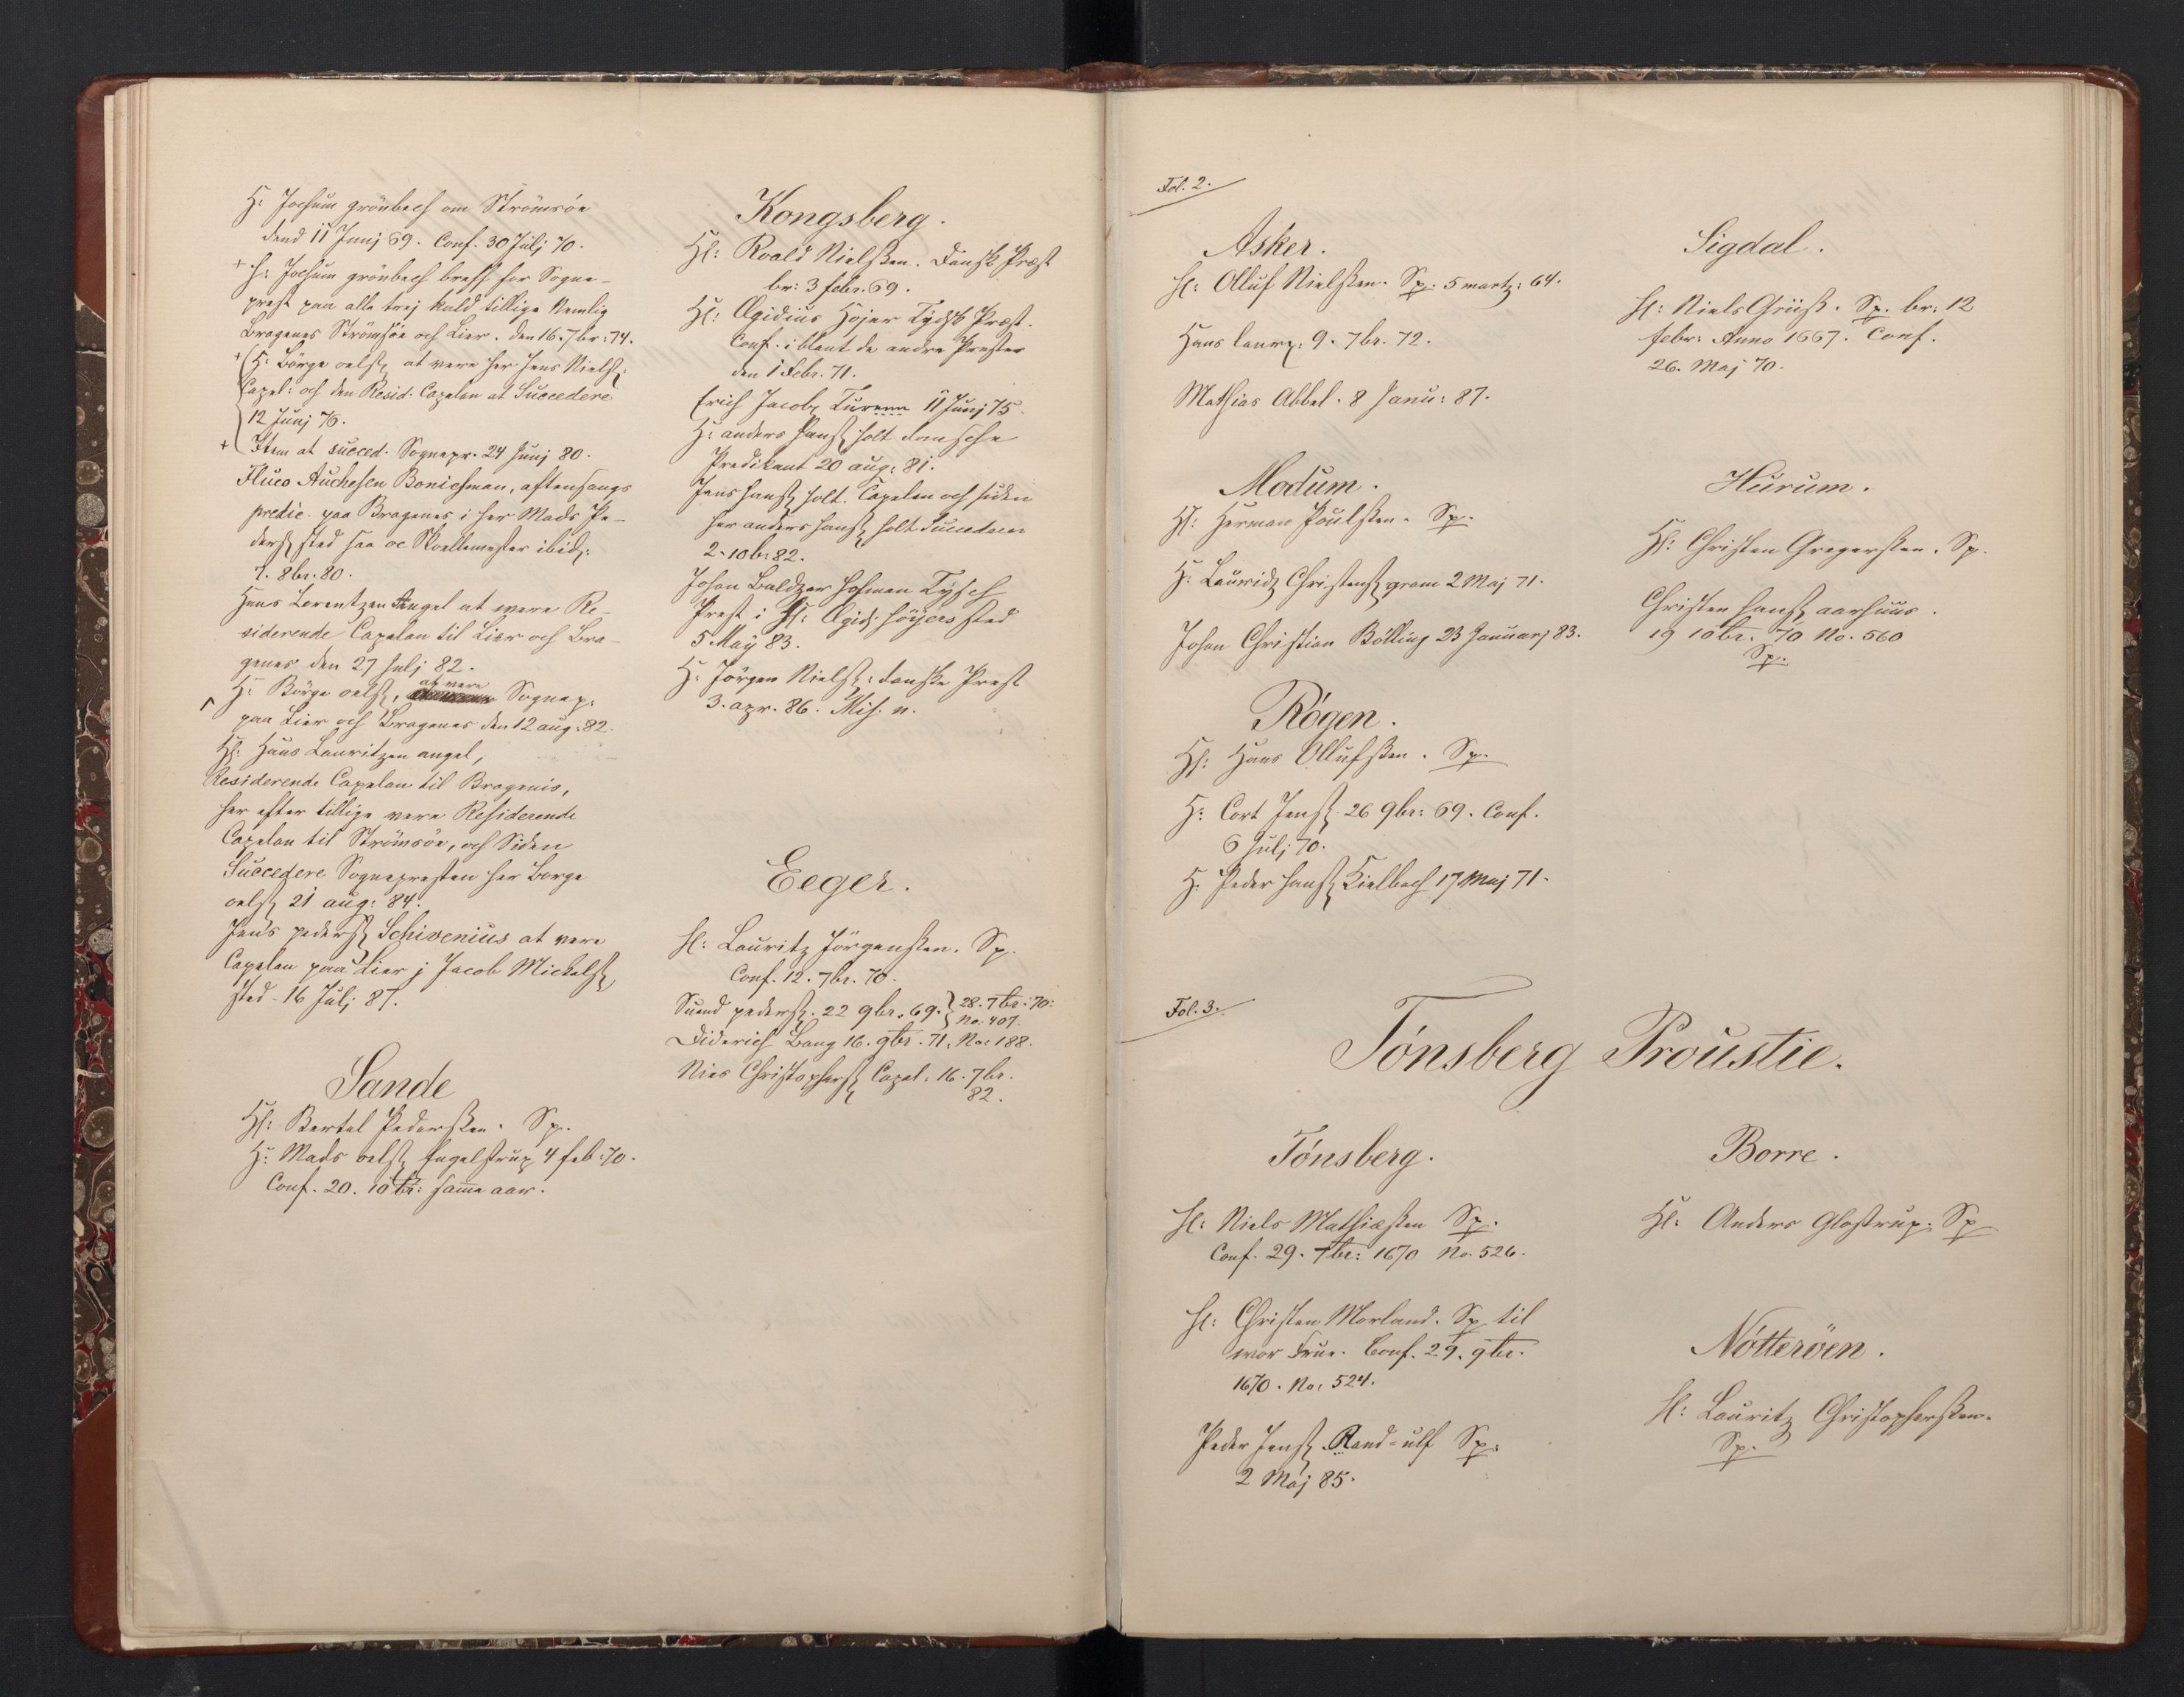 H: Jochum grönbech om Strömsöe
dend 11 Junj 69. Conf. 30 Julj 70.
+ H: Jochum grönbech breff for Sogne-
prest paa alle trej kald tillige Nemlig
Bragenes Strömsöe och Lier. den 16. 7br: 74.
+ H: Börge oelsz at vere her Jens Nielsz:
Capel: och den Resid: Capelan at Succedere
12 Junj 76.
+ Item at succed. Sognepr. 24 Junj 80.
Fluco Auchesen Bonichman, aftensangs
predic. paa Bragenes i her Mads Pe-
dersz sted saa oc Skollemester ibid:
1. 8br. 80.
Hans Lorentzen Angel at were Re-
siderende Capelan til Lier och Bra-
genes den 27 Julj 82.
H: Börge oelsz, at vere Sognep:
paa Lier och Bragenes den 12 aug: 82.
Hl: Hans Lauritzen angel,
Residerende Capelan til Bragenis,
her efter tillige vere Residerende
Capelan til Strömsöe, och Siden
Succedere Sognepresten her Borge
oelsz 21 aug: 84.
Jens pedersz Schivenius at vere
Capelan paa Lier j Jacob Mickelsz
sted. 16 Julj 87.
Sande
Hl: Bertel Pedersken. Sp.
H: Mads oelsz Engelstrup 4 feb: 70.
Conf. 20. 10br: samme aar.
Kongsberg.
Hl: Roald Nielsken. Dansk Præst
br: 3 febr. 69.
Hl: Ægidius Höjer Tydsk Præst.
Conf. iblant de andre Prester
den 1 Febr. 71.
Erich Jacobz Turenn 11 Junj 75.
H: anders hansz holt dansche
Predikant 20 aug: 81.
Jens hansz holt. Capelan och siden
her anders hansz holt
2. 10br 82.
Johan Baldzer Hofman Tysch
Prest i Hl: Ægidj höyers sted
5 Maÿ 83.
H: Jörgen Nielsz: danske Prest
3. apr. 86. Miss. n.
Eeger.
Hl: Lauritz Jörgensken. Sp.
Conf. 12. 7br. 70.
Suend pedersz. 22 9br. 69. } 28. 7br: 70:
No: 407.
Diderich Bang 16. 9br. 71. No: 188.
Niels Christophersz Capel: 16. 7br.
82.
Fol. 2.
Asker.
Hl: Olluf Nielsken. Sp. 5 martz: 64.
Hans laurz: 9. 7br. 72.
Mathias Abbel. 8 Janu: 87.
Modum.
Hl: Herman Poulsken. Sp.
H: Lauridz Christensz gram 2 Maj 71.
Johan Christian Bölling 23 Januarj 83.
Rögen.
Hl: Hans Ollufsken. Sp.
H: Cort Jensz 26 9br: 69. Conf.
6 Julj 70.
H: Peder hansz Kielbech 17 Maj 71.
Sigdal.
Hl: Niels Griis. Sp. br: 12
febr: Anno 1667. Conf.
26. Maj 70.
Hurum.
Hl: Christen Gregersken. Sp.
Christen hansz aarhuus.
19 10br. 70 No. 560
Sp.
Fol. 3.
Tönsberg Proustie.
Tönsberg.
Hl: Niels Mathiæsken Sp.
Conf. 29. 9br: 1670 No. 526.
Hl: Christen Morland. Sp til
wor Frue. Conf. 29. 9br.
1670. No: 524.
Peder Jensz Rand-ulf Sp:
2 Maj 85.
Borre.
Hl: Anders Glostrup. Sp
Nötteröen.
Hl: Lauritz Christophersken.
Sp.